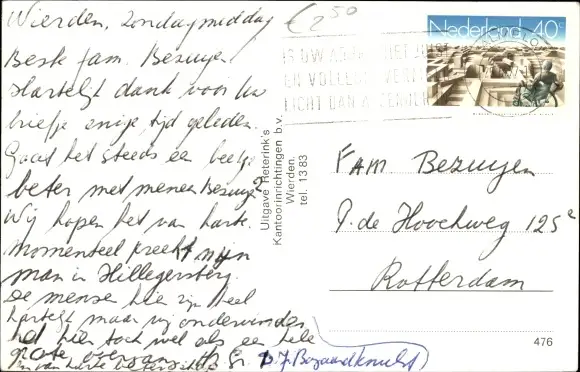 Wierden, Zondagmiddag
€ 2 50
Beste fam. Bezuyen
Hartelijk dank voor Uw
briefje enige tijd geleden.
Gaat het steeds een beetje
beter met meneer Bezuyen?
Wij hopen het van harte.
momenteel preekt mijn
man in Hillegersberg.
De mensen hier zijn heel
hartelijk maar wij ondervinden
het hier toch wel als een hele
grote overgang. H. Gr.
van harte beterschap
Uitgave Reterink's
Kantoorinrichtingen b.v.
Wierden.
tel. 13 83
Nederland 40c
IS UW
EN VOLLEDIG
LICHT DAN
Fam Bezuyen
P. de Hoochweg 125c
Rotterdam
476